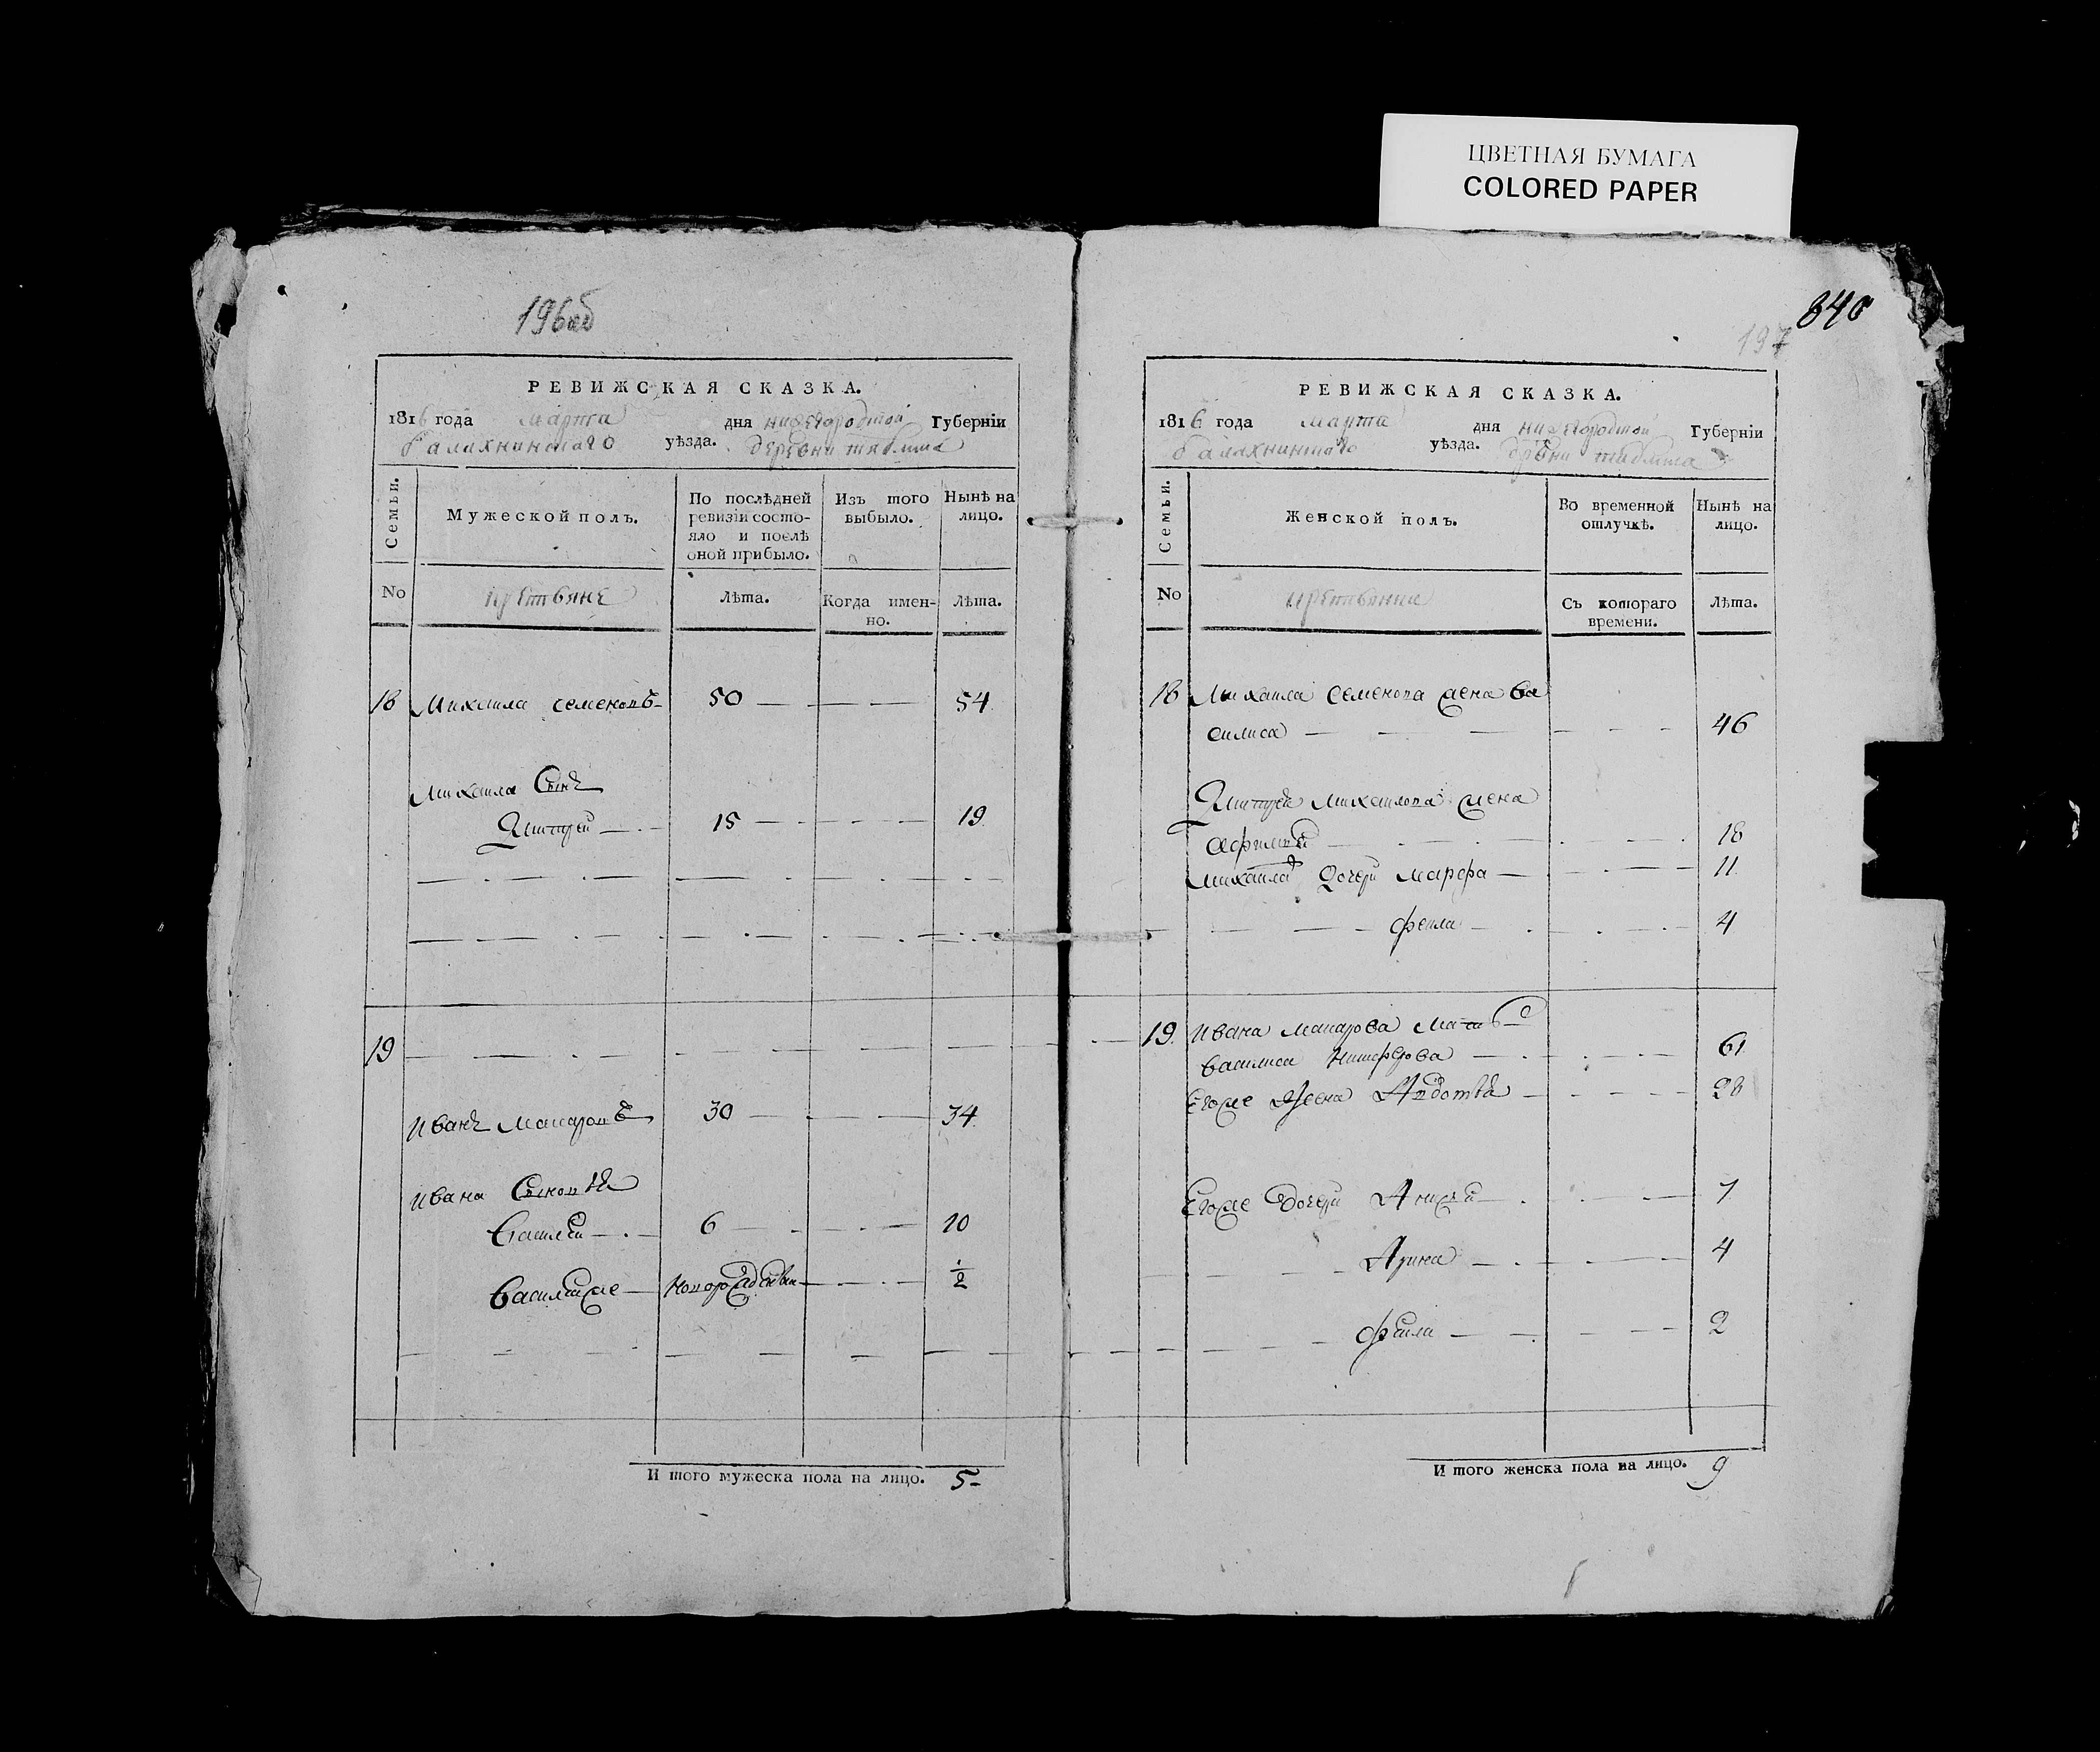 ЦВЕТНАЯ БУМАГА
COLORED PAPER
196об
РЕВИЖСКАЯ СКАЗКА.
1816 года марта дня нижегородской Губерніи
балахнинскаго уѣзда. деревни
Семьи.
Мужеской полъ.
По послѣдней ревизіи состо-
яло и послѣ
оной прибыло.
Изъ того
выбыло.
Нынѣ на
лицо.
No
крестьяне
Лѣта.
Когда имен-
но.
Лѣта.
18 Михаила семеновъ 50 54
Михаила Сынъ
Дмитрей 15 19
19
Иванъ Макаровъ 30 34
Ивана Сыновья
6 10
Василейже новорожденны 1/2
И того мужеска пола на лицо. 5
840
197
РЕВИЖСКАЯ СКАЗКА.
1816 года марта дня нижегородской Губерніи
балахнинскаго уѣзда.
Семьи.
Женской полъ.
Во временной
отлучкѣ.
Нынѣ на
лицо.
No
Съ котораго
времени.
Лѣта.
18 Михаила семенова жена Ва
силиса 46
Дмитрея михаилова жена
18
Михаила дочери марфа 11
фекла 4
19 Ивана макарова мать
василиса никифорова 61
Егоже жена Авдотья 28
Егоже дочери 7
Арина 4
фекла 2
И того женска пола на лицо. 9